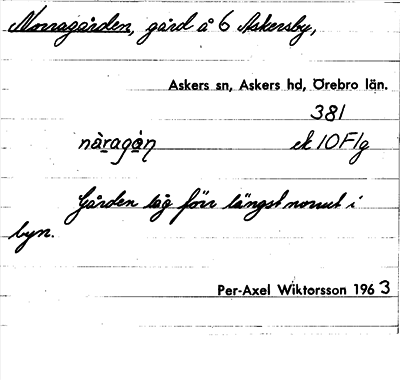 Norragården, gård å 6 Askersby,
Askers sn, Askers hd, Örebro län.
381
nàragàṇ ek 10F1g
Gården låg förr längst norrut i
byn.
Per-Axel Wiktorsson 1963